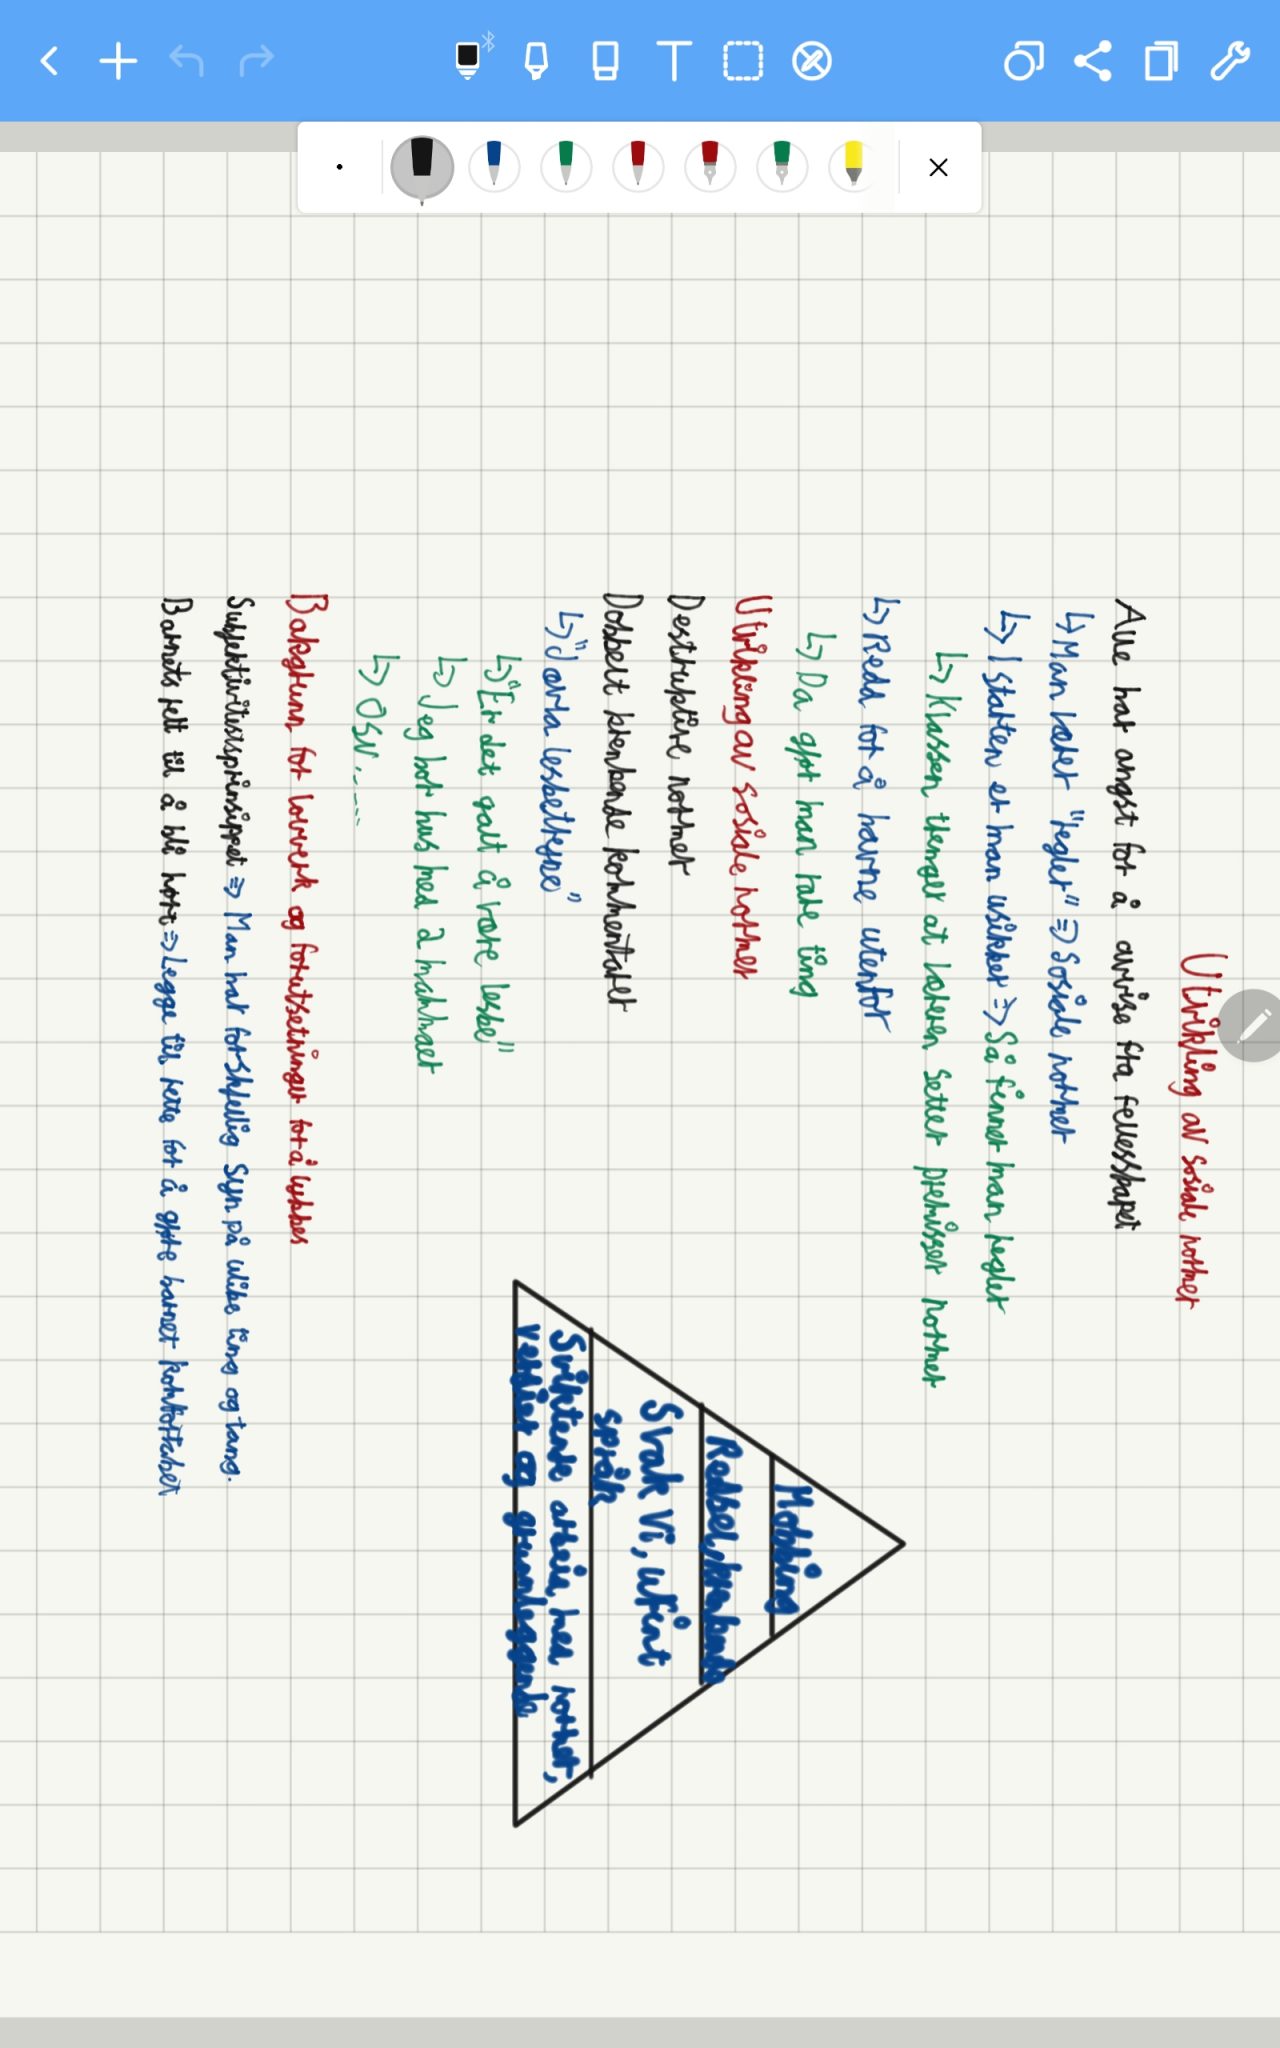 Utvikling av sosiale normer
Alle har angst for å avvise fra fellesskapet
↳ Man lærer "regler" => Sosiale normer
↳ I starten er man usikker => Så finner man regler
↳ Klassen trenger at læreren setter premisser normer
↳ Redd for å havne utenfor
↳ Da gjør man rare ting
Utvikling av sosiale normer
Destruktive normer
Dobbelt krenkende kommentarer
↳ "Jævla lesbeterne"
↳ "Er det galt å være lesbe"
↳ Jeg bor hus med 2 mammaer
↳ OSV.----
Bakgrunn for lovverk og forutsetninger for å lykkes
Subjektivitetsprinsippet => Man har forskjellig syn på ulike ting og tang.
Barnets rett til å bli hørt => Legge til rette for å gjøre barnet komfortabel
Mobbing
Redsel, krenkende
Svak Vi, ufint
språk
Sviktende arbeid med normer,
verdier og grunnleggende
T